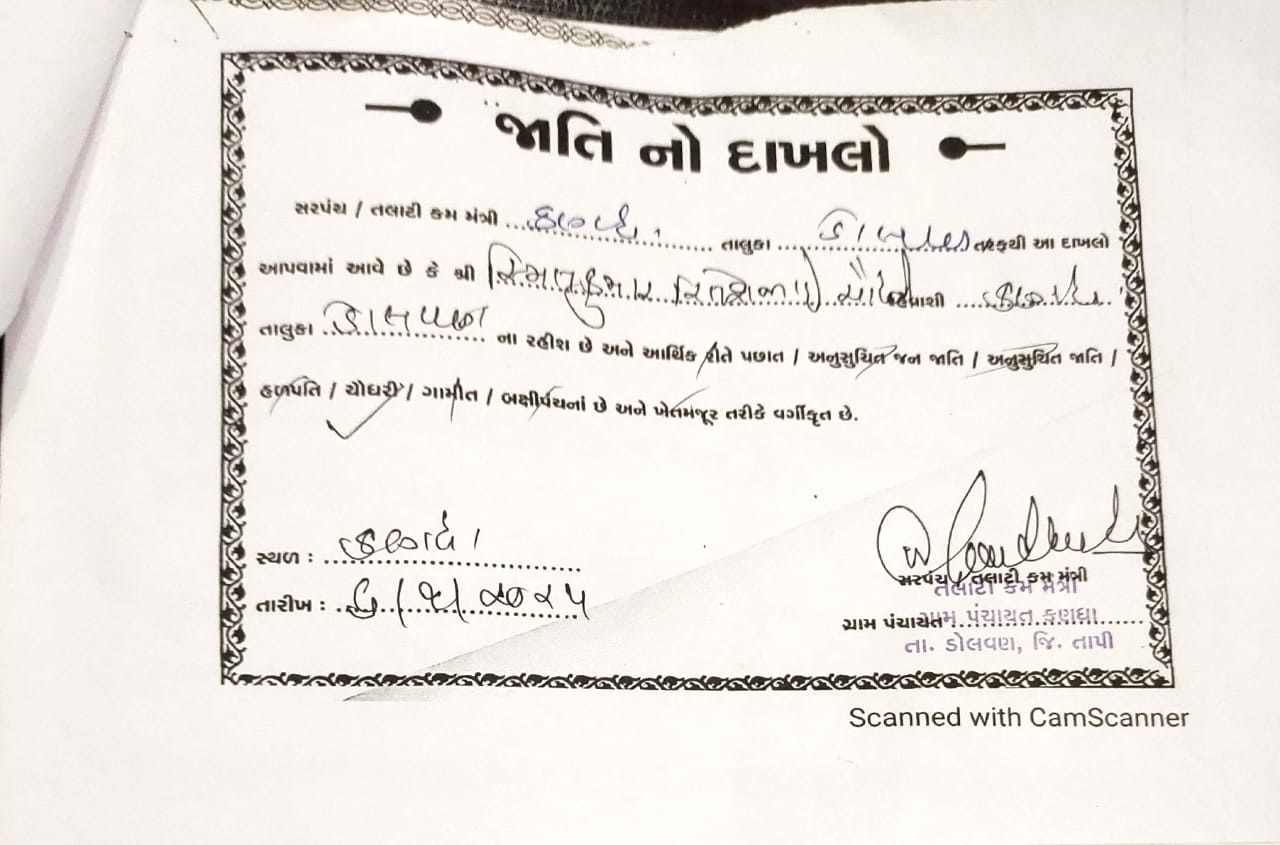 જાતિ નો દાખલો
સરપંચ / તલાટી કમ મંત્રી ............ તાલુકા ડોલવણ તરફથી આ દાખલો
આપવામાં આવે છે કે શ્રી ............ રહેવાશી ............
તાલુકા ડોલવણ ના રહીશ છે અને આર્થિક રીતે પછાત / અનુસુચિત જન જાતિ / અનુસુચિત જાતિ /
હળપતિ / ચૌધરી / ગામીત / બક્ષીપંચનાં છે અને ખેતમંજૂર તરીકે વર્ગીકૃત છે.
સ્થળ : ............
તારીખ : ............ ૨૦૨૫
સરપંચ / તલાટી કમ મંત્રી
તલાટી કમ મંત્રી
ગ્રામ પંચાયત ............
ગ્રામ પંચાયત કણધા
તા. ડોલવણ, જિ. તાપી
Scanned with CamScanner